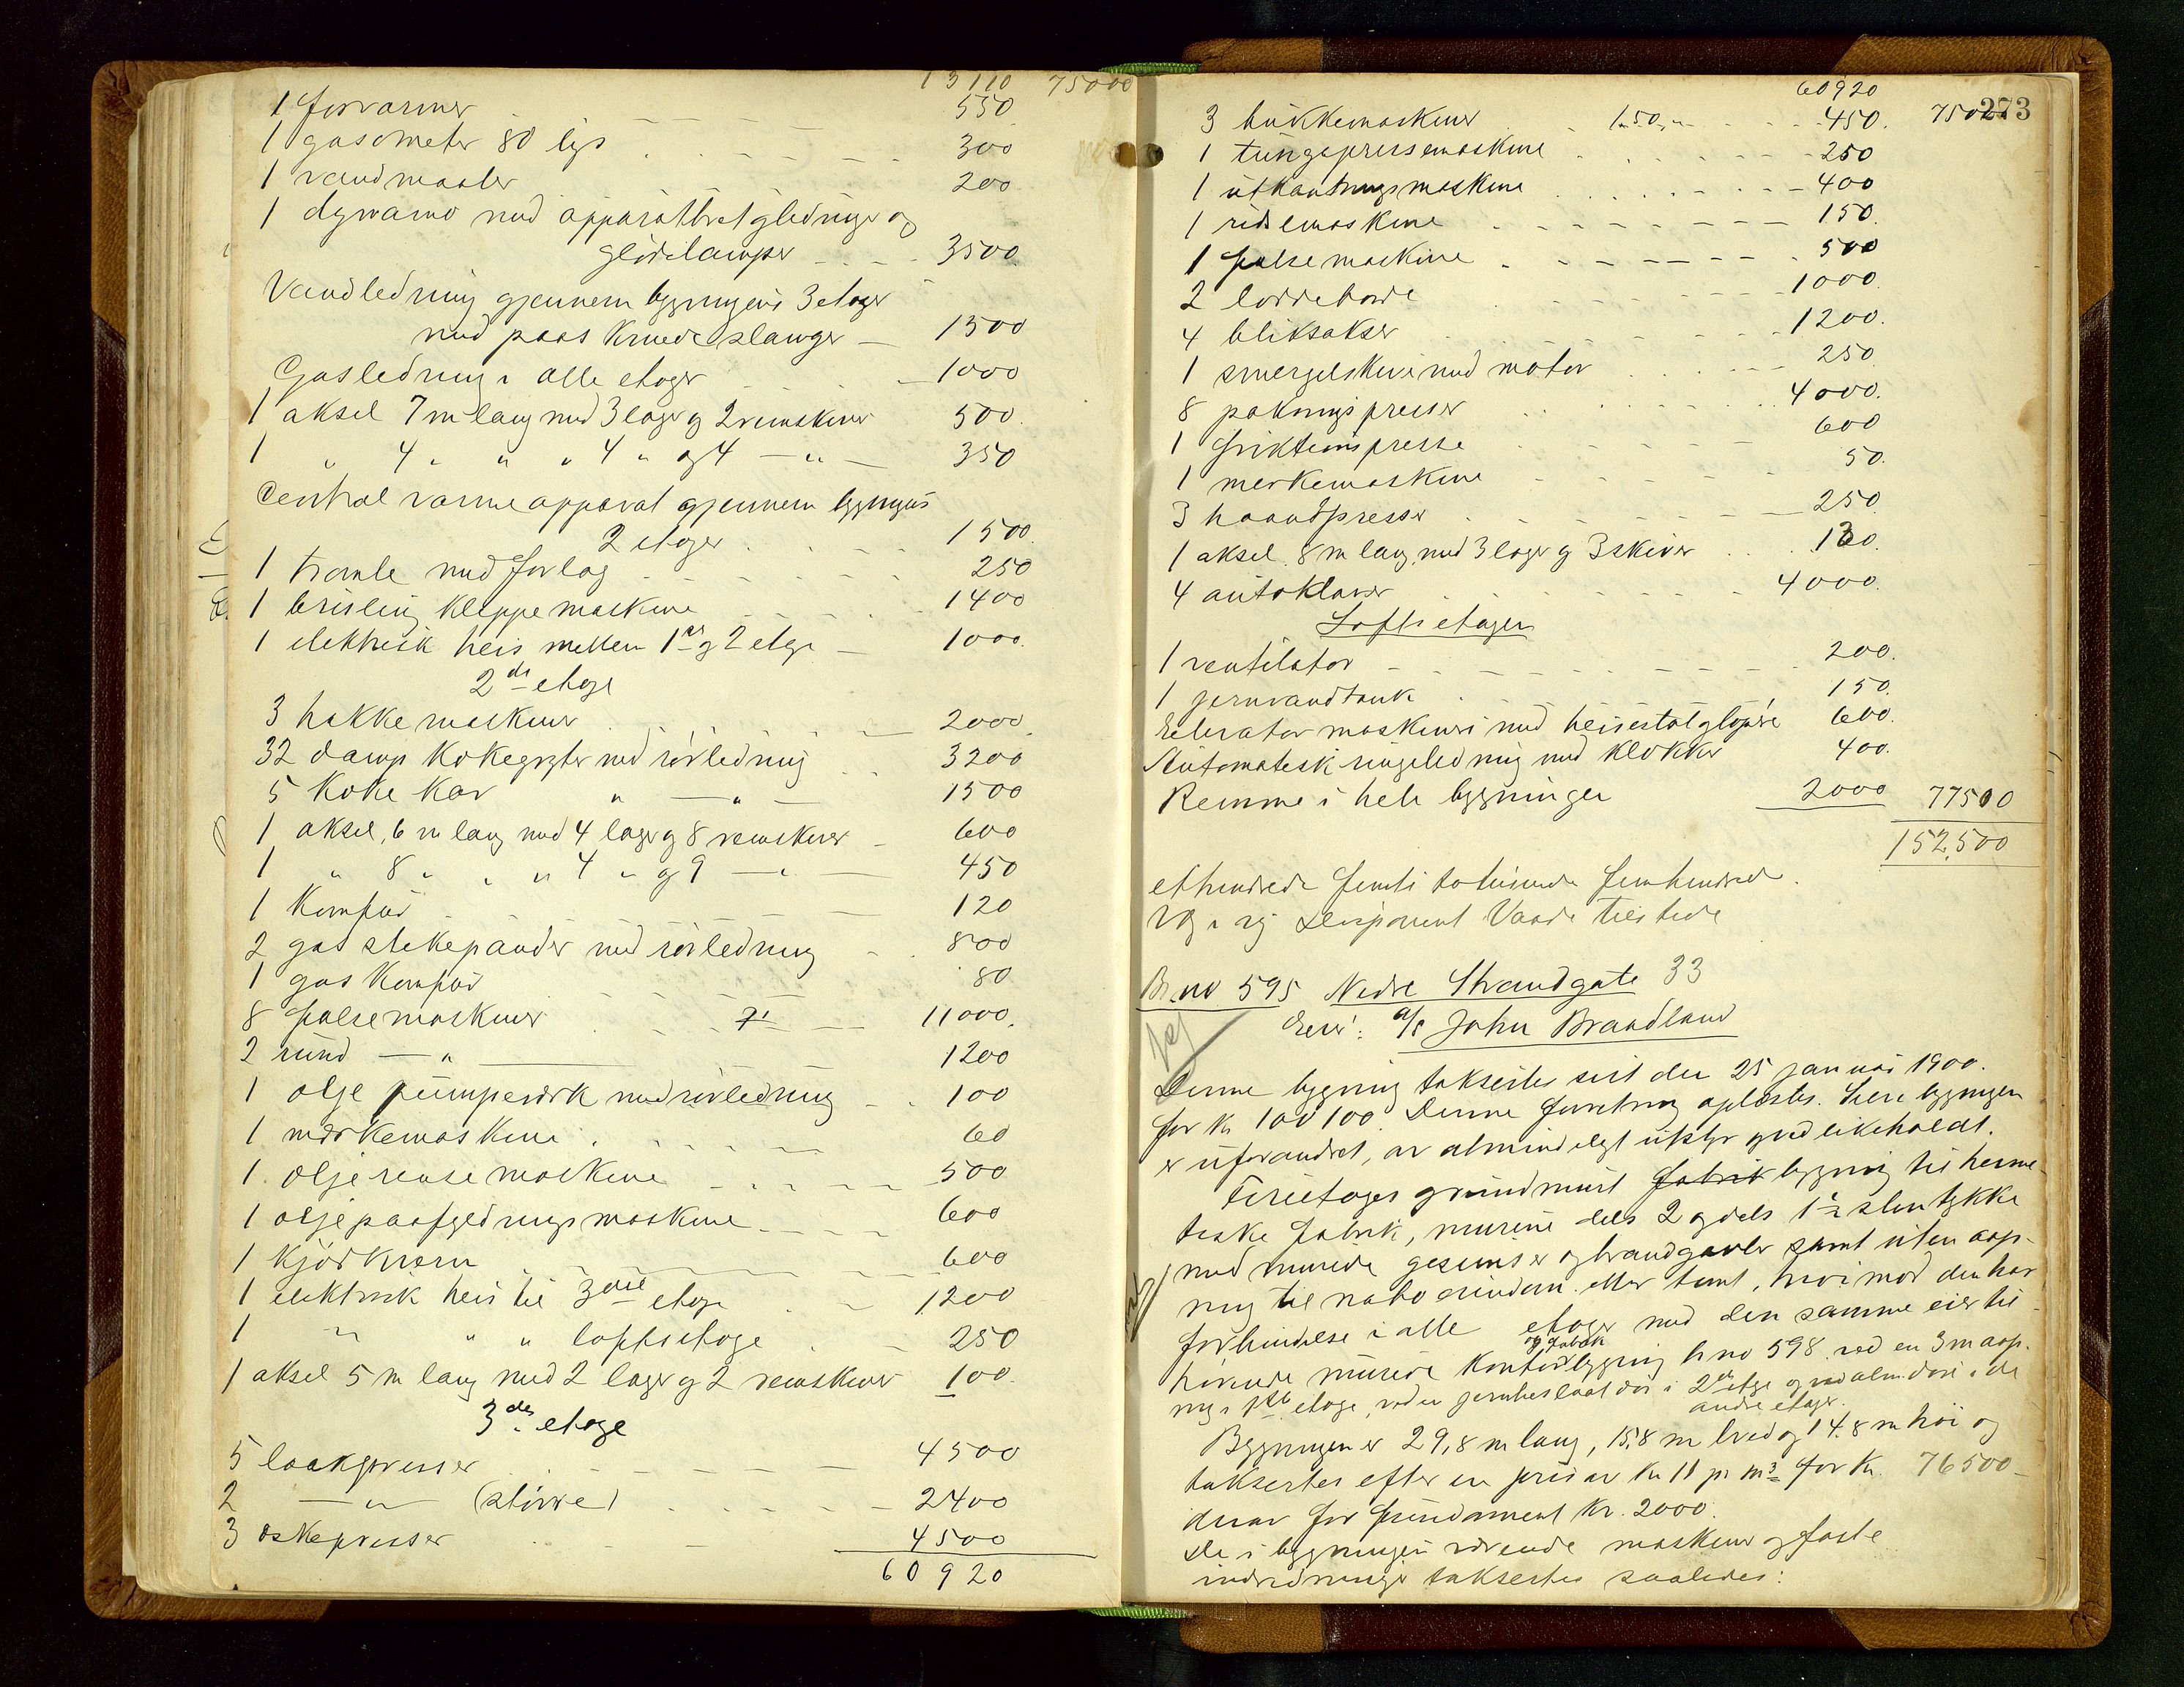 13110 75000
1 forvarmer 550
1 gasometer 80 lys 300
1 vandmaaler 200
1 dynamo med apparattavt gledninger og
glødelamper 3500
Vandledning gjennem bygningens 3 etager
med paaskruede slanger 1500
Gasledning i alle etager 1000
1 aksel 7 m lang med 3 lager og 2 remskiver 500
1 " 4 " " " 4 " og 4 — " — 350
Central varmeapparat gjennem bygningens
2 etager 1500
1 tromle med forlag 250
1 brisling klippemaskine 1400
1 elektrisk heis mellem 1ste og 2 etage 1000
2den etage
3 hakkemaskiner 2000
32 damp kokegryter med rørledning 3200
5 koke kar " — " — 1500
1 aksel, 6 m lang med 4 lager og 8 remskiver 600
1 " 8 " " " 4 " og 9 — " — 450
1 komfur 120
2 gas stekepander med rørledning 800
1 gas komfur 80
8 falsemaskiner 11000
2 rund — " — 1200
1 olje pumpeværk med rørledning 100
1 merkemaskine 60
1 oljerensemaskine 500
1 oljepaafyldningsmaskine 600
1 kjødkværn 600
1 elektrisk heis til 3die etage 1200
1 " " " loftsetage 250
1 aksel 5 m lang med 2 lager og 2 remskiver 100
3die etage
5 laakpresser 4500
2 — " — (større) 2400
3 æskepresser 4500
60920
273
60920
3 bukkemaskiner 150,- 450. 75000
1 tungepressemaskine 250
1 utkantningsmaskine 400
1 ridsemaskine 150.
1 falsemaskine 500
2 loddeborde 1000.
4 bliksakser 1200.
1 smergelskive med motor 250
8 pakningspresser 4000.
1 friktionspresse 600
1 merkemaskine 50.
3 haandpresser 250
1 aksel 8 m lang med 3 lager og 3 skiver 130.
4 autoklaver 4000.
Loftsetagen
1 ventilator 200.
1 jernvandtank 150.
Elevator maskineri med heisestol og løpere 600.
Automatisk ringeledning med klokker 400.
Remme i hele bygningen 2000 77500
152,500
ethundrede femti totusinde femhundrede.
Disponent Vaade tilstede
Br. no 595 Nedre Strandgate 33
Eier: A/S John Braadland
Denne bygning taksertes sist den 25 januar 1900.
for kr 100100. Denne forretning oplæstes. Selve bygningen
er uforandret, av almindeligt utstyr og vedlikeholdt.
Treetages grundmurt fabrik bygning til herme-
tiske fabrik, murene dels 2 og dels 1½ sten tykke
med murede gesimser og brandgavler samt uten aap-
ning til nabo eiendom eller tomt, hvorimod den har
forbindelse i alle etager med den samme eier til-
hørende murede kontor og fabrik bygning br no 598 ved en 3 m aap-
ning i 1ste etage, ved en jernbeslaat dør i 2den etage og ved alm. døre i de
andre etager.
Bygningen er 29,8 m lang, 15,8 m bred og 14.8 m høi og
taksertes efter en pris av kr 11 pr m³ for kr. 76500
derav for fundament kr. 2000.
De i bygningen værende maskiner og faste
indredninger taksertes saaledes: